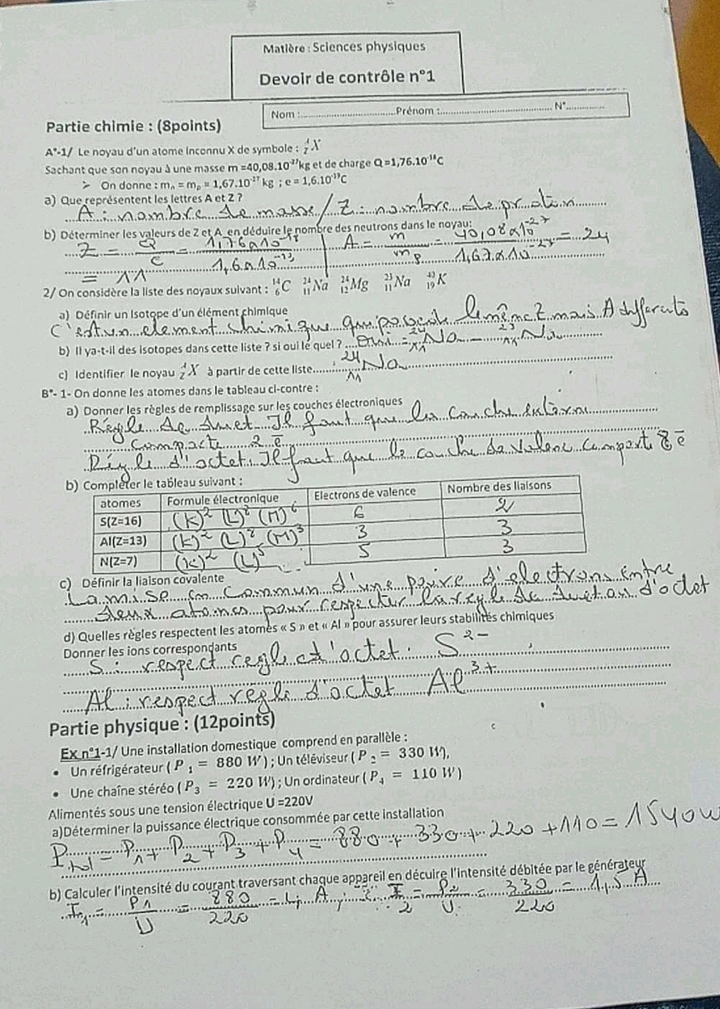 Matière : Sciences physiques
Devoir de contrôle n°1
Nom :..............................Prénom :.................................... N°.............
Partie chimie : (8points)
A°-1/ Le noyau d'un atome inconnu X de symbole : ᴬ_Z X
Sachant que son noyau à une masse m =40,08.10⁻²⁷kg et de charge Q =1,76.10⁻¹⁸C
➢ On donne : mₙ = mₚ = 1,67.10⁻²⁷ kg ; e = 1,6.10⁻¹⁹C
a) Que représentent les lettres A et Z ?
A : nombre de masse / Z : nombre de proton
b) Déterminer les valeurs de Z et A, en déduire le nombre des neutrons dans le noyau:
Z = Q/e = 1,76×10⁻¹⁸/1,6×10⁻¹⁹ = 11 | A = m/mₚ = 40,08×10⁻²⁷/1,67×10⁻²⁷ = 24
2/ On considère la liste des noyaux suivant : ¹⁴₆C ²⁴₁₁Na ²⁴₁₂Mg ²³₁₁Na ⁴⁰₁₉K
a) Définir un Isotope d'un élément chimique
C'est un element chimique qui possède le même Z mais A differents
b) Il ya-t-il des isotopes dans cette liste ? si oui le quel ? Oui = ²⁴₁₁Na - ²³₁₁Na
c) Identifier le noyau ᴬ_Z X à partir de cette liste ²⁴₁₁Na
B°- 1- On donne les atomes dans le tableau ci-contre :
a) Donner les règles de remplissage sur les couches électroniques
Régle de duet. Il faut que la couche externe
compacte 2 ē
Régle d'octet. Il faut que le couche de valenc comporte 8 ē
b) Compléter le tableau suivant :
atomes Formule électronique Electrons de valence Nombre des liaisons
S(Z=16) (K)² (L)⁸ (M)⁶ 6 2
Al(Z=13) (K)² (L)⁸ (M)³ 3 3
N(Z=7) (K)² (L)⁵ 5 3
c) Définir la liaison covalente
La mise en commun d'une paire d'electrons entre
deux atomes pour respecter la regle de duet ou d'octet
d) Quelles règles respectent les atomes « S » et « Al » pour assurer leurs stabilités chimiques
Donner les ions correspondants
S : respect regle d'octet. S²⁻
Al : respect regle d'octet Al³⁺
Partie physique : (12points)
Ex n°1-1/ Une installation domestique comprend en parallèle :
• Un réfrigérateur ( P₁ = 880 W ) ; Un téléviseur ( P₂ = 330 W),
• Une chaîne stéréo ( P₃ = 220 W) ; Un ordinateur ( P₄ = 110 W )
Alimentés sous une tension électrique U =220V
a)Déterminer la puissance électrique consommée par cette installation
= P₁ + P₂ + P₃ + P₄ = 880 + 330 + 220 + 110 = 1540 W
b) Calculer l'intensité du courant traversant chaque appareil en décuire l'intensité débitée par le générateur
I₁ = P₁/U = 880/220 = 4 A ; I₂ = P₂/U = 330/220 = 1,5 A